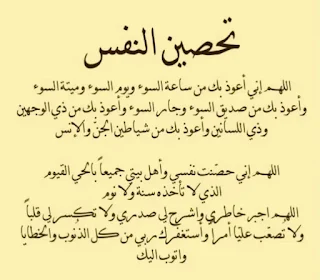 تحصين النفس
اللهم إني أعوذ بك من ساعة السوء ويوم السوء وميتة السوء
وأعوذ بك من صديق السوء وجار السوء وأعوذ بك من ذي الوجهين
وذي اللسانين وأعوذ بك من شياطين الجن والإنس
اللهم إني حصّنت نفسي وأهل بيتي جميعاً بالحي القيوم
الذي لا تأخذه سنة ولا نوم
اللهم اجبر خاطري واشرح لي صدري ولا تكسر لي قلباً
ولا تُصعّب عليّا أمراً وأستغفرك ربي من كل الذنوب والخطايا
واتوب اليك